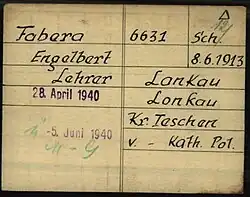 Fabera 6631 Sch.
Engelbert 8.6.1913
Lehrer Lonkau
28. April 1940 Lonkau
Kr. Teschen
-5. Juni 1940 v. - Kath. Pol.
M-G